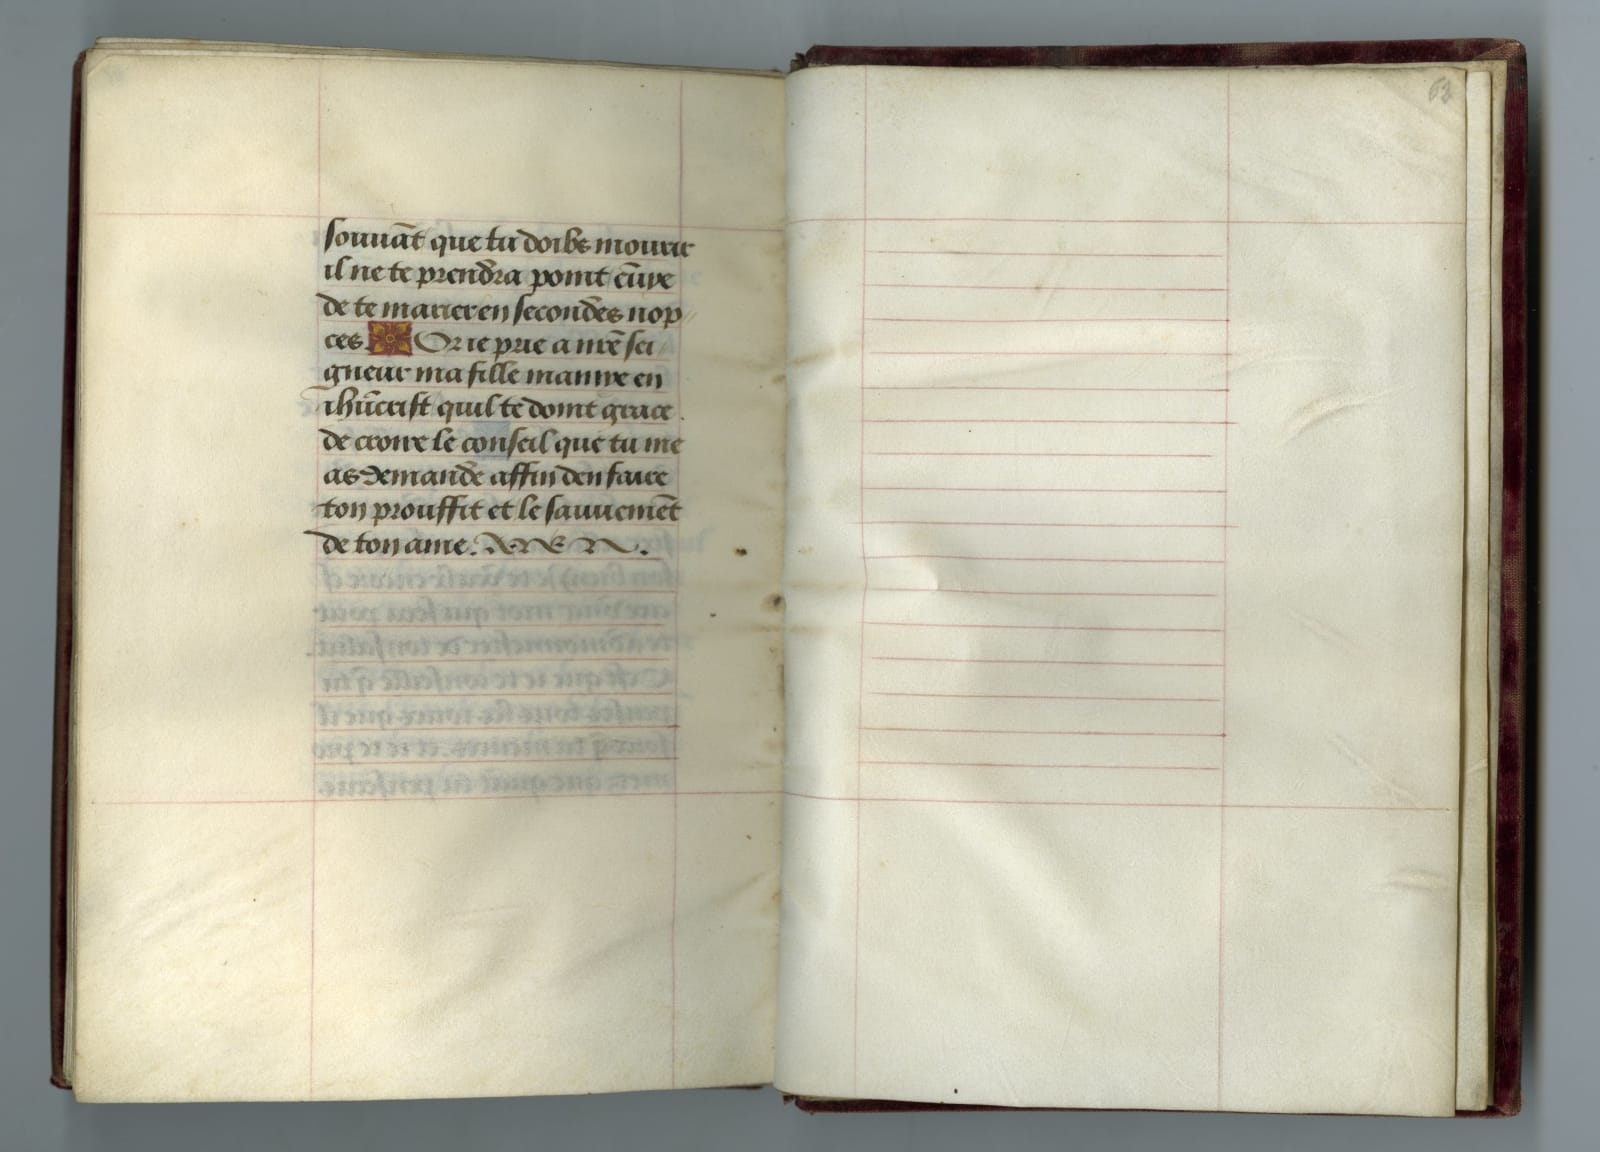 souuāt que tu doibs mourir
il ne te prendra point ēuye
de te marier en secondes nop
ces. Or ie prie a nrē sei
gneur ma fille mamye en
ihūcrist quil te doint grace
de croire le conseil que tu me
as demande affin den faire
ton prouffit et le sauuemēt
de ton ame.
63